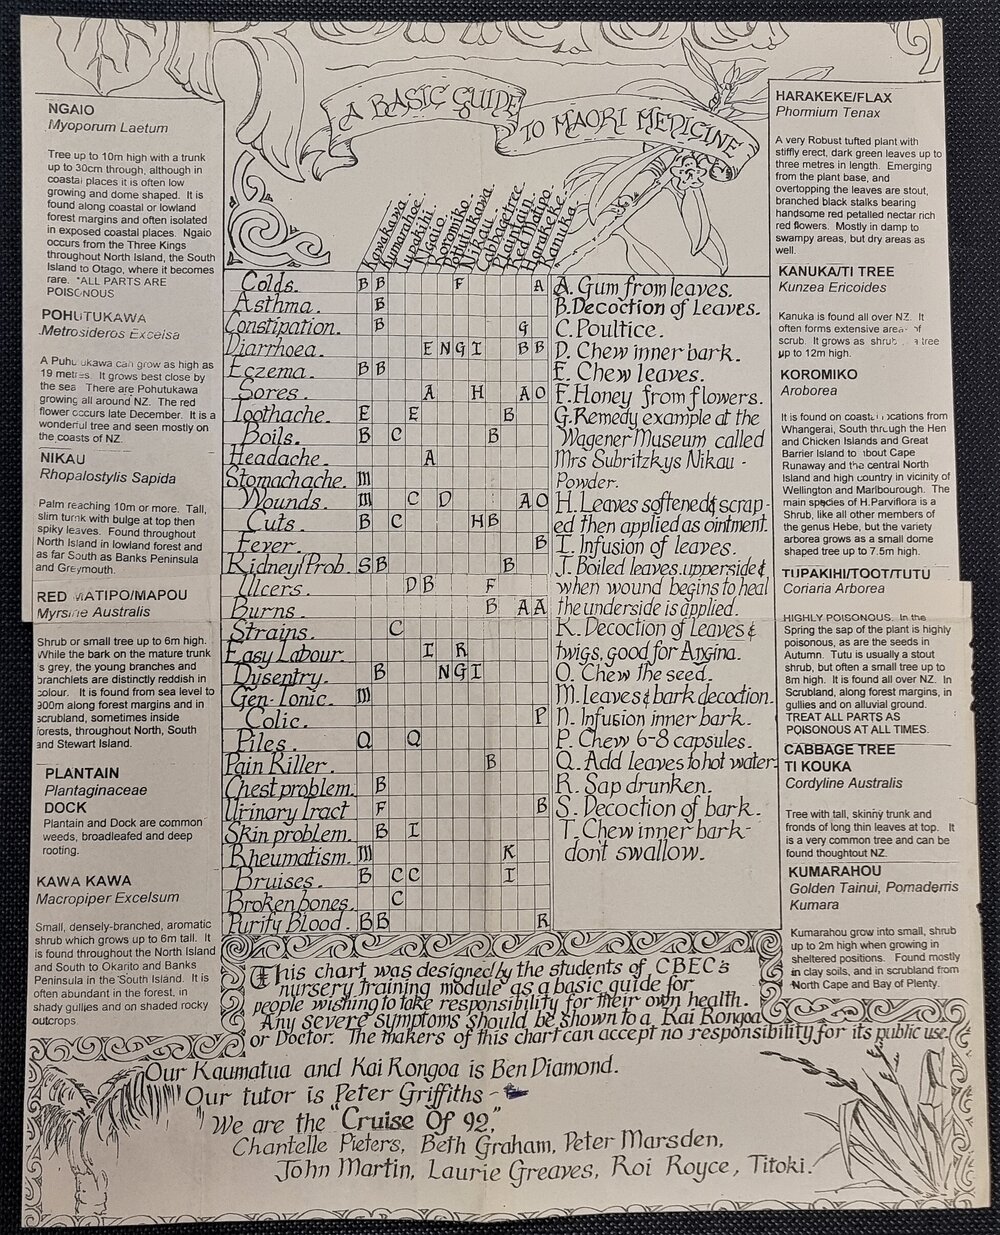 A BASIC GUIDE
TO MAORI MEDICINE
NGAIO
Myoporum Laetum
Tree up to 10m high with a trunk
up to 30cm through, although in
coastal places it is often low
growing and dome shaped. It is
found along coastal or lowland
forest margins and often isolated
in exposed coastal places. Ngaio
occurs from the Three Kings
throughout North Island, the South
Island to Otago, where it becomes
rare. *ALL PARTS ARE
POISONOUS
POHUTUKAWA
Metrosideros Excelsa
A Pohutukawa can grow as high as
19 metres. It grows best close by
the sea. There are Pohutukawa
growing all around NZ. The red
flower occurs late December. It is a
wonderful tree and seen mostly on
the coasts of NZ.
NIKAU
Rhopalostylis Sapida
Palm reaching 10m or more. Tall,
slim turnk with bulge at top then
spiky leaves. Found throughout
North Island in lowland forest and
as far South as Banks Peninsula
and Greymouth.
RED MATIPO/MAPOU
Myrsine Australis
Shrub or small tree up to 6m high.
While the bark on the mature trunk
is grey, the young branches and
branchlets are distinctly reddish in
colour. It is found from sea level to
900m along forest margins and in
scrubland, sometimes inside
forests, throughout North, South
and Stewart Island.
PLANTAIN
Plantaginaceae
DOCK
Plantain and Dock are common
weeds, broadleafed and deep
rooting.
KAWA KAWA
Macropiper Excelsum
Small, densely-branched, aromatic
shrub which grows up to 6m tall. It
is found throughout the North Island
and South to Okarito and Banks
Peninsula in the South Island. It is
often abundant in the forest, in
shady gullies and on shaded rocky
outcrops.
Kawakawa. Kumarahoe. Tupakihi. Ngaio. Koromiko. Pohutukawa. Nikau. Cabbagetree. Plantain. Red Matipo. Harakeke. Kanuka.
Colds. B B F A
Asthma. B
Constipation. B G
Diarrhoea. E N G I B B
Eczema. B B
Sores. A H A O
Toothache. E E B
Boils. B C B
Headache. A
Stomachache. M
Wounds. M C D A O
Cuts. B C H B
Fever. B
Kidney/Prob. S B B
Ulcers. D B F
Burns. B A A
Strains. C
Easy Labour. I R
Dysentry. B N G I
Gen-Tonic. M
Colic. P
Piles. Q Q
Pain Killer. B
Chest problem. B
Urinary Tract F B
Skin problem. B I
Rheumatism. M K
Bruises. B C C I
Broken bones. C
Purify Blood. B B R
A. Gum from leaves.
B. Decoction of Leaves.
C. Poultice.
D. Chew inner bark.
E. Chew leaves.
F. Honey from flowers.
G. Remedy example at the
Wagener Museum called
Mrs Subritzkys Nikau -
Powder.
H. Leaves softened & scrap-
ed then applied as ointment.
I. Infusion of leaves.
J. Boiled leaves. upperside &
when wound begins to heal
the underside is applied.
K. Decoction of Leaves &
twigs, good for Angina.
O. Chew the seed.
M. Leaves & bark decoction.
N. Infusion inner bark.
P. Chew 6-8 capsules.
Q. Add leaves to hot water.
R. Sap drunken.
S. Decoction of bark.
T. Chew inner bark-
dont swallow.
HARAKEKE/FLAX
Phormium Tenax
A very Robust tufted plant with
stiffly erect, dark green leaves up to
three metres in length. Emerging
from the plant base, and
overtopping the leaves are stout,
branched black stalks bearing
handsome red petalled nectar rich
red flowers. Mostly in damp to
swampy areas, but dry areas as
well.
KANUKA/TI TREE
Kunzea Ericoides
Kanuka is found all over NZ. It
often forms extensive areas of
scrub. It grows as shrub a tree
up to 12m high.
KOROMIKO
Aroborea
It is found on coastal locations from
Whangerai, South through the Hen
and Chicken Islands and Great
Barrier Island to about Cape
Runaway and the central North
Island and high country in vicinity of
Wellington and Marlbourough. The
main species of H.Parviflora is a
Shrub, like all other members of
the genus Hebe, but the variety
arborea grows as a small dome
shaped tree up to 7.5m high.
TUPAKIHI/TOOT/TUTU
Coriaria Arborea
HIGHLY POISONOUS. In the
Spring the sap of the plant is highly
poisonous, as are the seeds in
Autumn. Tutu is usually a stout
shrub, but often a small tree up to
8m high. It is found all over NZ. In
Scrubland, along forest margins, in
gullies and on alluvial ground.
TREAT ALL PARTS AS
POISONOUS AT ALL TIMES.
CABBAGE TREE
TI KOUKA
Cordyline Australis
Tree with tall, skinny trunk and
fronds of long thin leaves at top. It
is a very common tree and can be
found thoughtout NZ.
KUMARAHOU
Golden Tainui, Pomaderris
Kumara
Kumarahou grow into small, shrub
up to 2m high when growing in
sheltered positions. Found mostly
in clay soils, and in scrubland from
North Cape and Bay of Plenty.
This chart was designed by the students of CBEC's
nursery training module as a basic guide for
people wishing to take responsibility for their own health.
Any severe symptoms should be shown to a Kai Rongoa
or Doctor. The makers of this chart can accept no responsibility for its public use.
Our Kaumatua and Kai Rongoa is Ben Diamond.
Our tutor is Peter Griffiths -
We are the "Cruise Of 92,"
Chantelle Pieters, Beth Graham, Peter Marsden,
John Martin, Laurie Greaves, Roi Royce, Titoki.